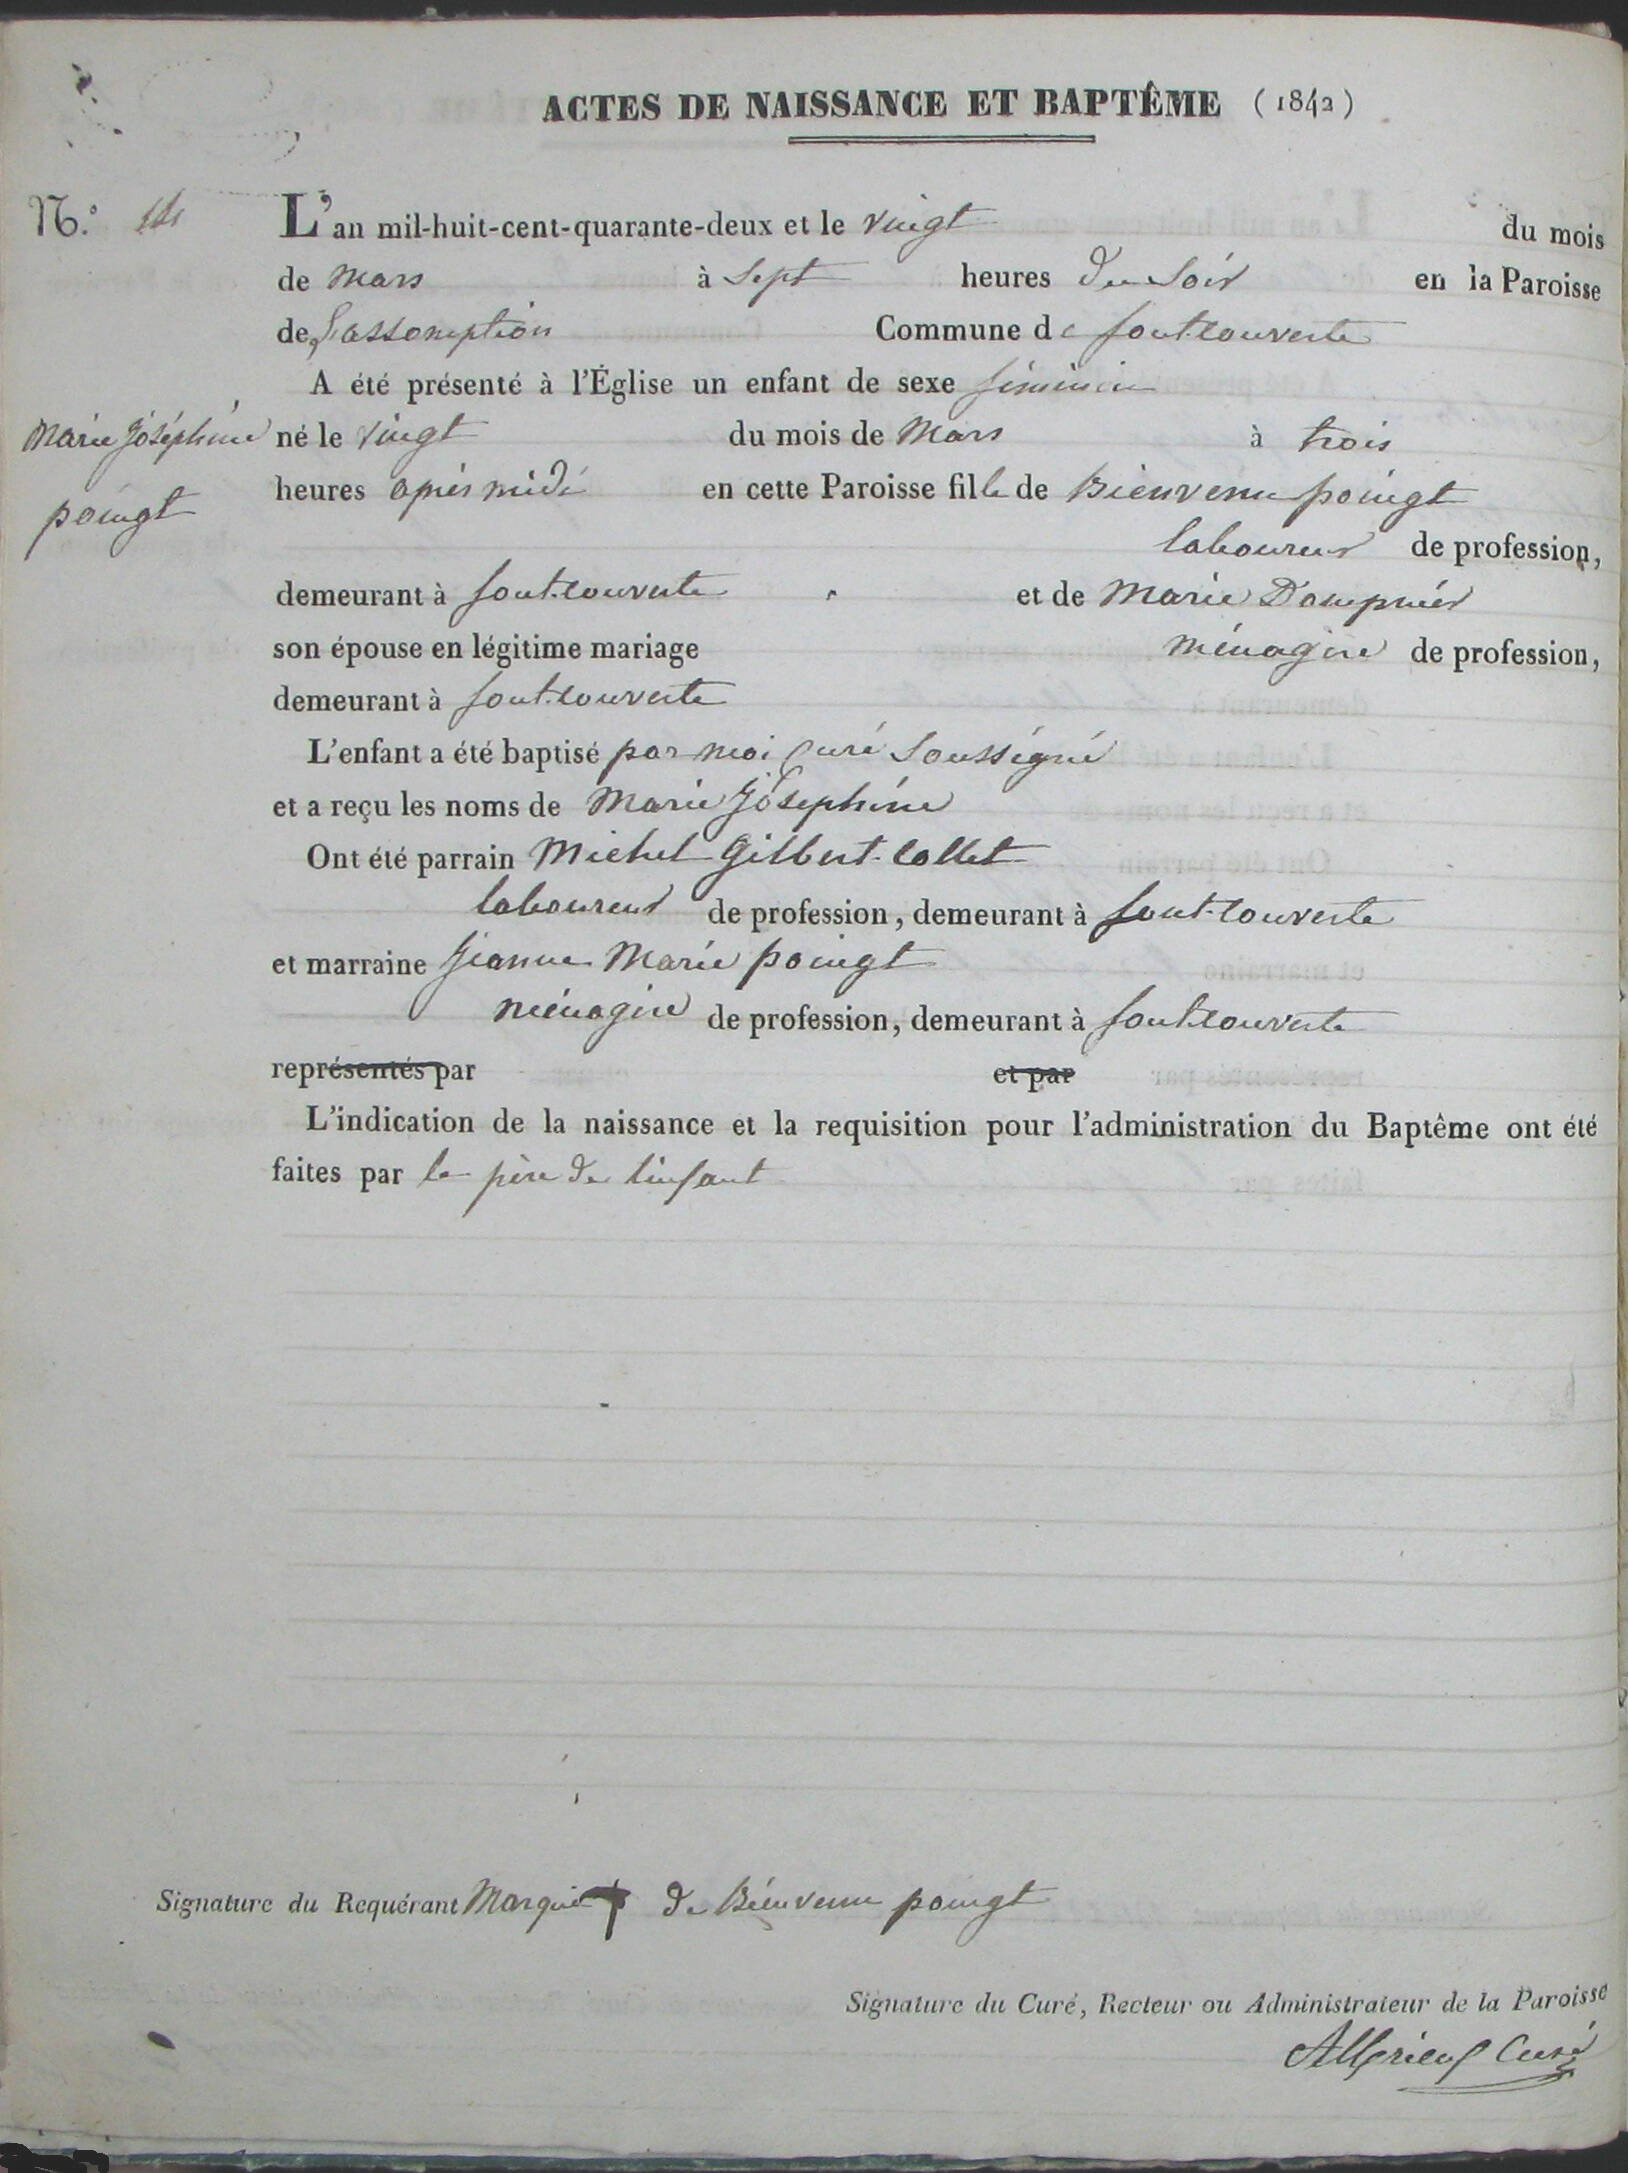 ACTES DE NAISSANCE ET BAPTÊME (1842)
N.º
L'an mil-huit-cent-quarante-deux et le vingt du mois
de Mars à Sept heures Du Soir en la Paroisse
de L'assomption Commune de font-couverte
A été présenté à l'Église un enfant de sexe féminin
Marie Joséphine né le vingt du mois de Mars à trois
poingt heures après midi en cette Paroisse fille de Bienvenu poingt
laboureur de profession,
demeurant à font-couverte et de Marie Dompnier
son épouse en légitime mariage ménagère de profession,
demeurant à font-couverte
L'enfant a été baptisé par moi Curé Soussigné
et a reçu les noms de Marie Joséphine
Ont été parrain Michel Gilbert-Collet
laboureur de profession, demeurant à font-couverte
et marraine Jeanne Marie poingt
ménagère de profession, demeurant à font-couverte
représentés par et par
L'indication de la naissance et la requisition pour l'administration du Baptême ont été
faites par le père de l'enfant
Signature du Requérant Marque de Bienvenu poingt
Signature du Curé, Recteur ou Administrateur de la Paroisse
Curé